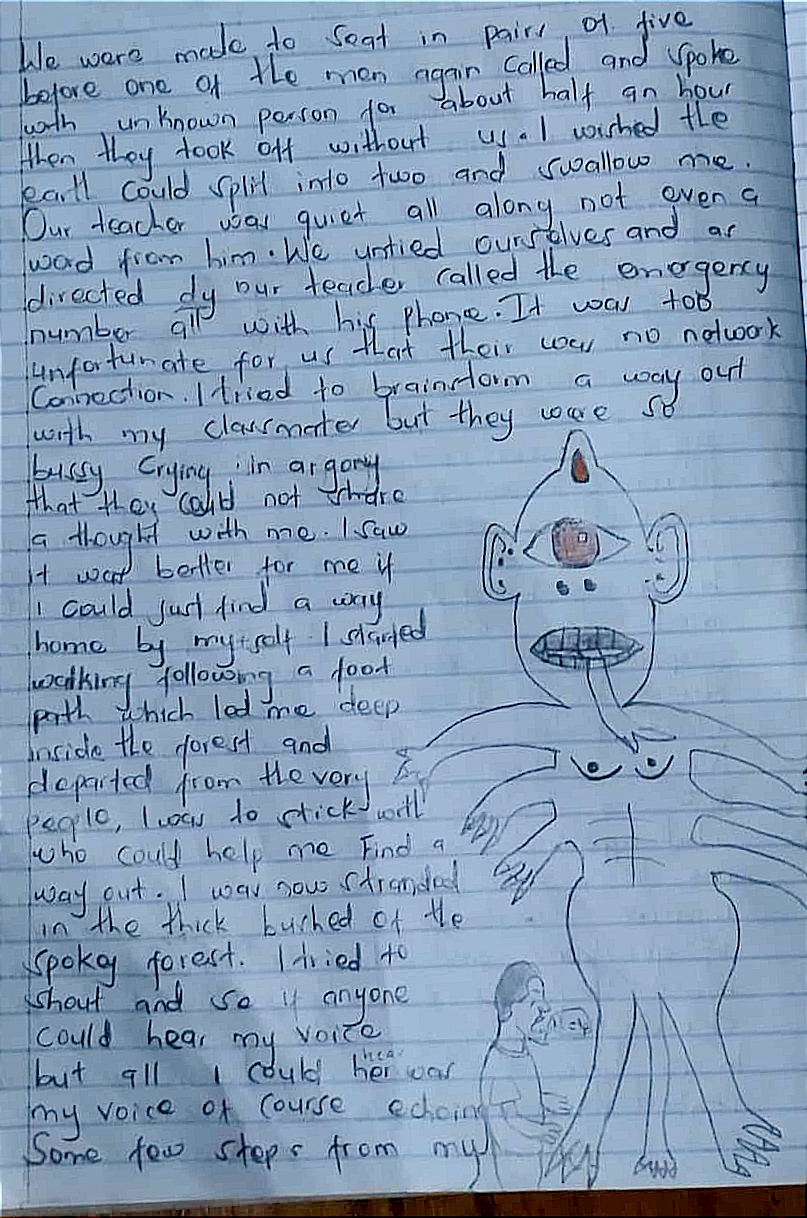 We were made to seat in pairs of five
before one of the men again called and spoke
with unknown person for about half an hour
then they took off without us. I wished the
earth could split into two and swallow me.
Our teacher was quiet all along not even a
word from him. We untied ourselves and as
directed dy our teacher called the emergency
number all with his phone. It was too
unfortunate for us that their was no network
Connection. I tried to brainstorm a way out
with my classmates but they were so
bussy Crying in argony
that they could not share
a thought with me. I saw
it was better for me if
i could just find a way
home by myself. I started
walking following a foot
path which led me deep
inside the forest and
departed from the very
people, I was to stick with
who could help me Find a
way out. I was now stranded
in the thick bushed of the
spokey forest. I tried to
shout and so if anyone
could hear my voice
but all i could hear was
my voice of course echoing
Some few steps from my